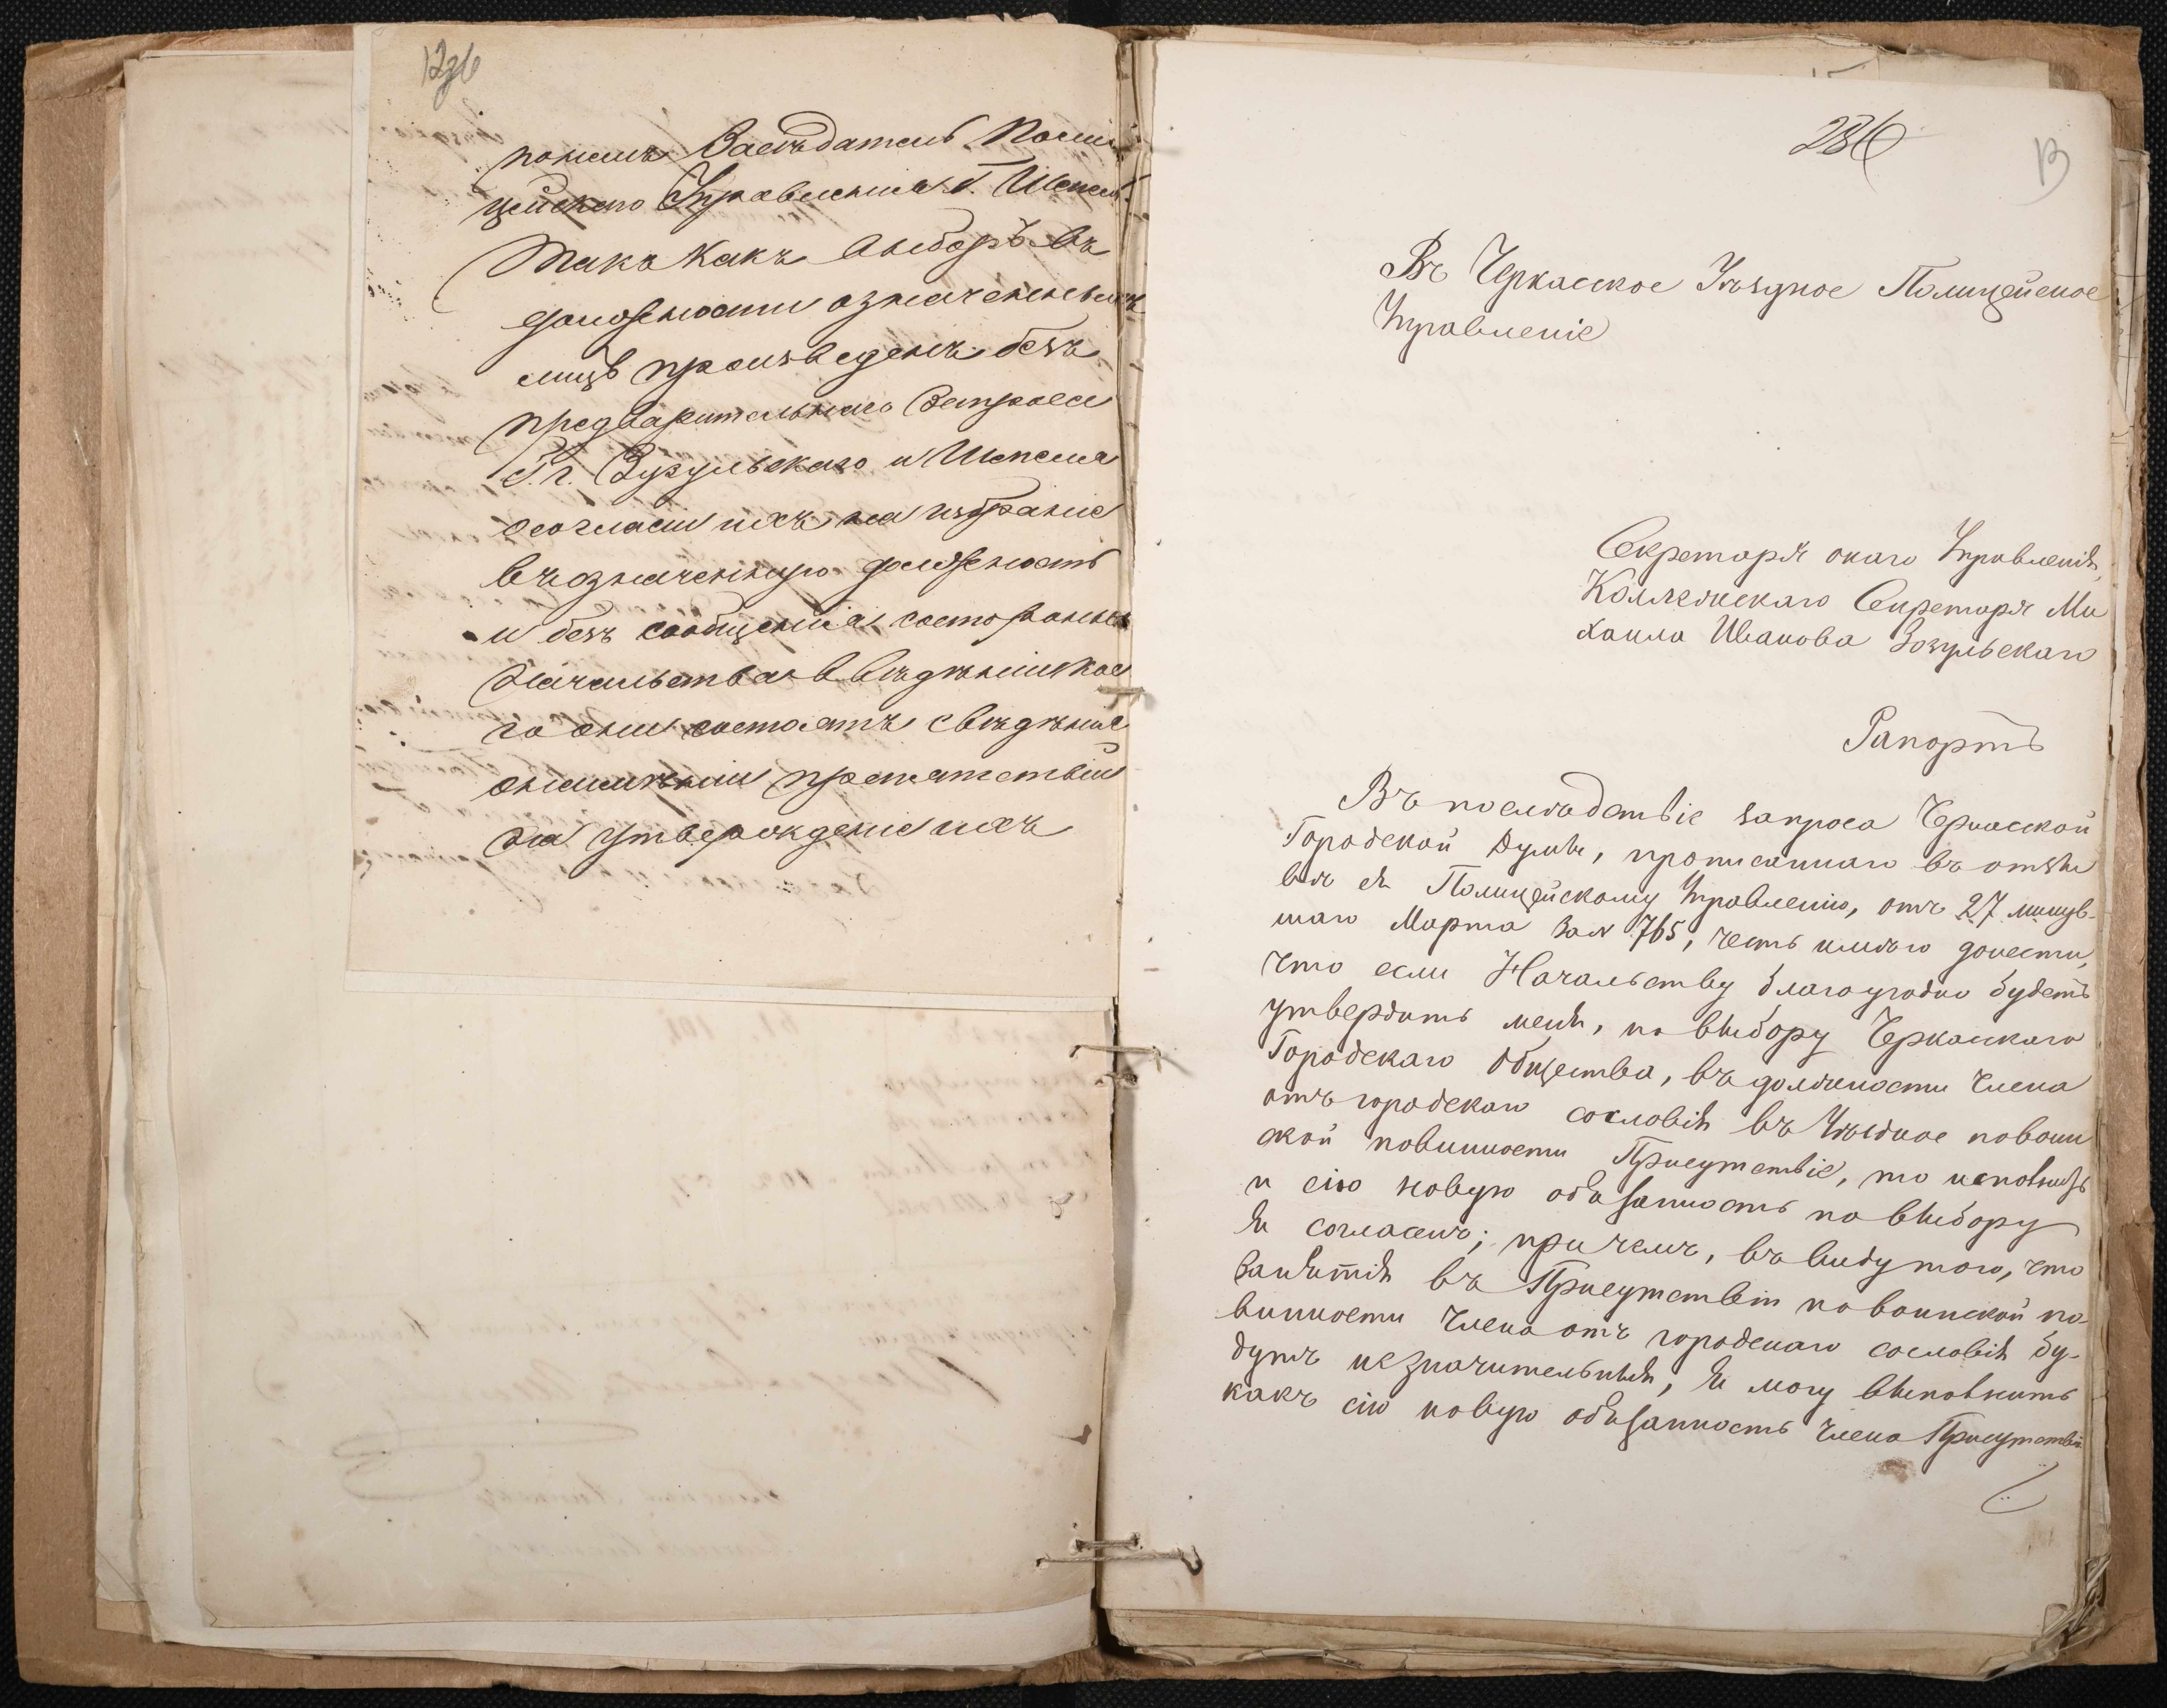 12об
Засѣдатель Поли
цейскаго Управленія Г. Шепель.
Такъ какъ выборъ въ
должности означенныхъ
лицъ произведенъ безъ
предварительнаго Запроса
Г.г. Зозульскаго и Шепеля
о согласіи ихъ на избраніе
въ означенную должность
и безъ сообщенія, со стороны
Начальства въ вѣдѣніи кое
го они состоятъ свѣдѣнія
о неимѣніи препятствій
на утвержденіе ихъ
236
13
Въ Черкасское Уѣздное Полицейское
Управленіе
Секретаря онаго Управленія,
Коллежскаго Секретаря Ми
хаила Иванова Зозульскаго
Рапортъ
Въ послѣдствіе запроса Черкасской
Городской Думы, прописаннаго въ отзы
вѣ ея Полицейскому Управленію, отъ 27 минув-
шаго Марта за № 765, честь имѣю донести,
что если Начальству благоугодно будетъ
утвердить меня, по выбору Черкасскаго
Городскаго Общества, въ должности Члена
отъ городскаго сословія въ Уѣздное по воин
ской повинности Присутствіе, то исполнять
и сію новую обязанность по выбору
я согласенъ; при чемъ, въ виду того, что
занятія въ Присутствіи по воинской по-
винности Члена отъ городскаго сословія бу-
дутъ незначительныя, я могу выполнить
какъ сію новую обязанность Члена Присутствія